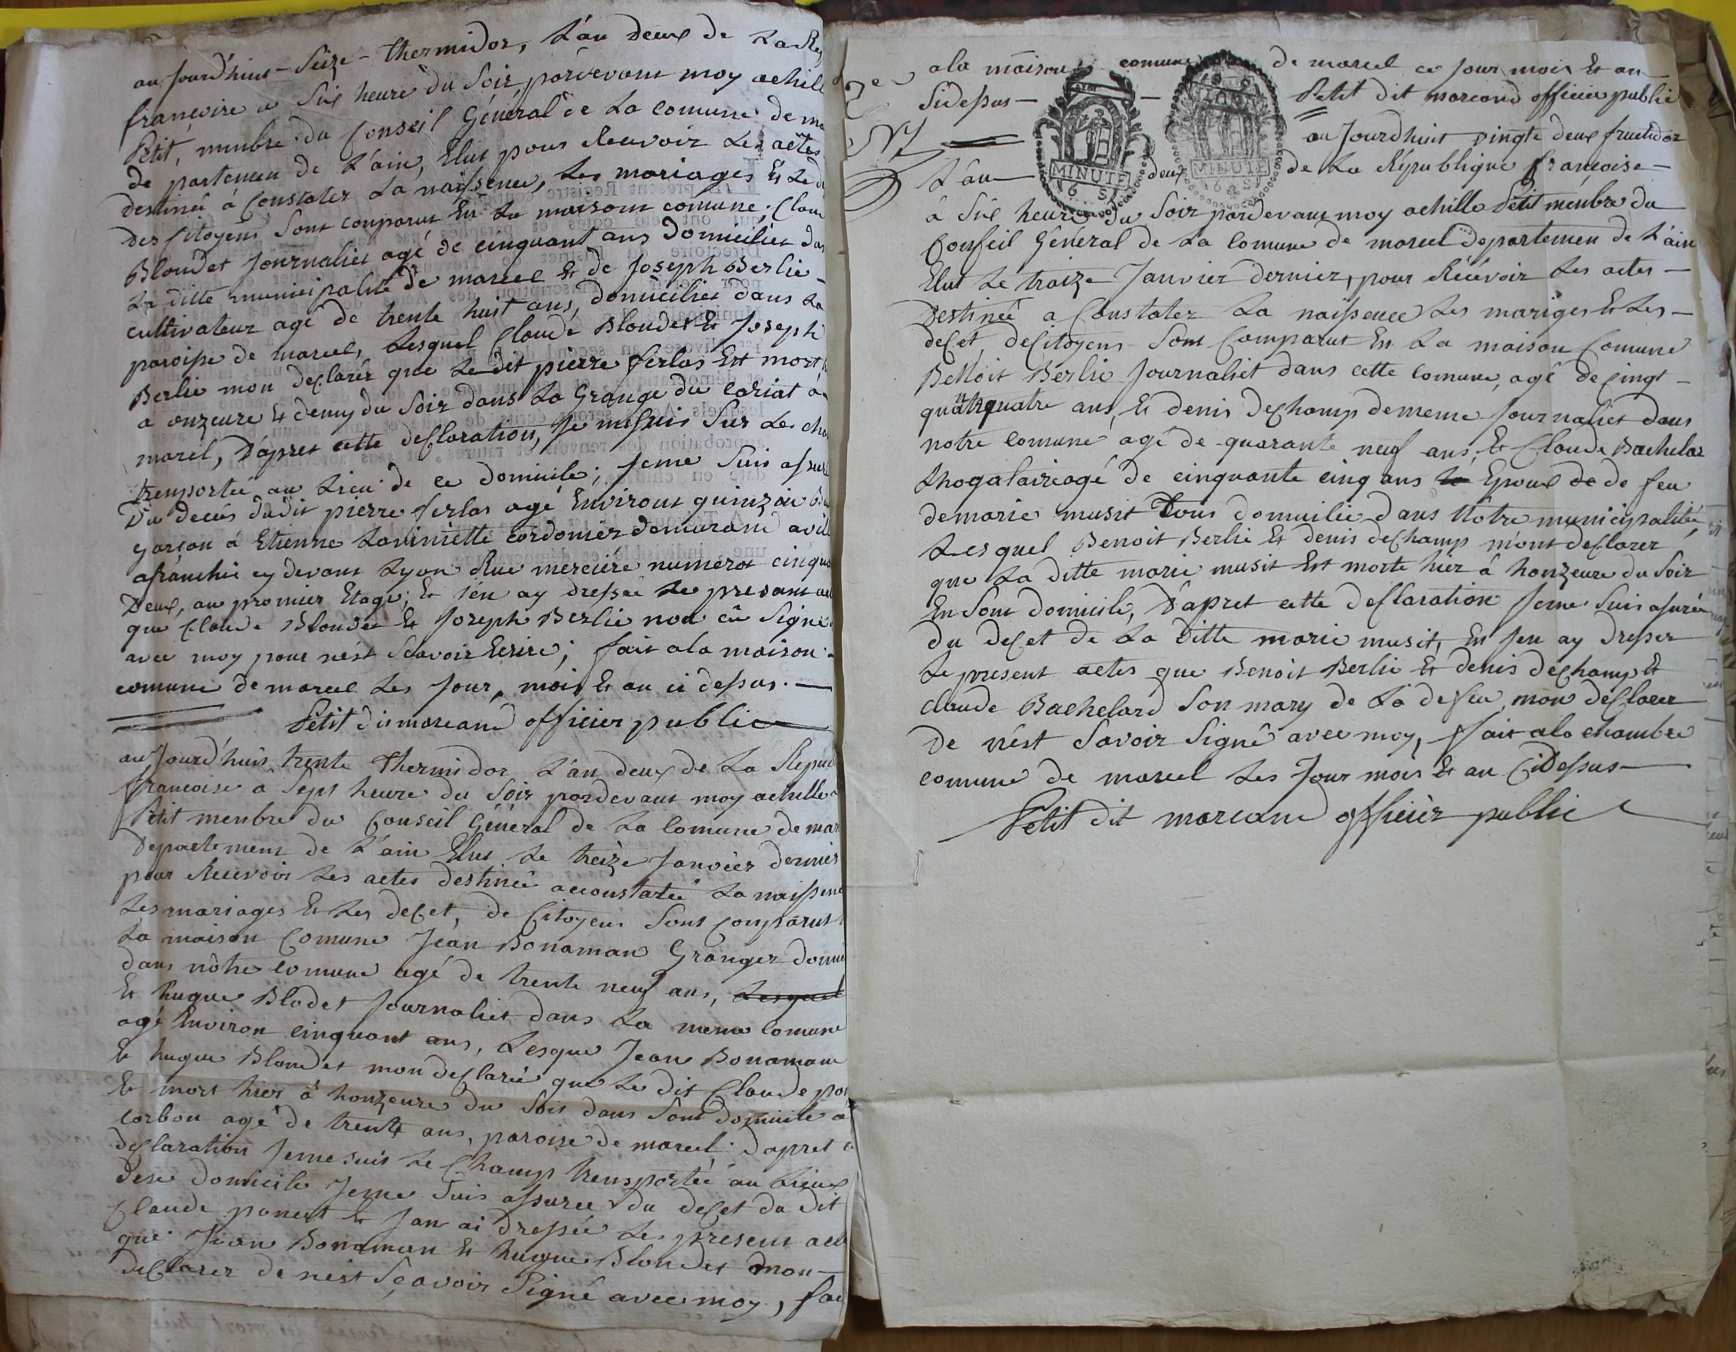 au jourd'huit - Seize - thermidor, L'an deux de La Rep
francoise a Six heure du Soir, pardevant moy achill
Petit, menbre du Conseil Général de La comune de ma
de partemen de L'ain, Elut pour Recevoir Les actes
destinée à Constater La naissence, Les mariages Et Le de
des Citoyens Sont comparut En La maison comune, Clau
Bloudet Journaliet agé de cinquant ans Domicilier da
La ditte municipalité de marcel Et de Joseph Berlie -
cultivateur agé de trente huit ans, domicilier dans La
paroisse de marcel, Lesquel Claude Bloudet Et Joseph
Berlie mon declarér que Le dit pierre ferlas Est mort h
a onzeure Et demy du Soir dans La Grange du Coriat a
marcel, D'apret cette declaration, Je me Suis Sur Les cha
trensportée au Lieu de ce domicile; Jeme Suis assuré
Du decés dudit pierre ferlas agé Environt quinze
garçon à Etienne Cordonier demurant a vill
afranchie cy devant Lyon Rue merciere numerot cinqua
Deux, au promier Etage; Et J'én ay dressée Le present a
que Claude Bloudet Et Joseph Berlie non cû Signé
avec moy pour nest Scavoir Ecrire; fait ala maison -
comune de marcel Les Jour, mois Et an ci depus. —
Petit dit marcand officier public
au Jourd'huit trente thermidor L'an deux de La Repub
francoise à Sept heure du Soir pardevant moy achille
Petit menbre du Conseil Général de La Comune de mar
Departement de L'ain Elut Le treize Janvier dernier
pour Recevoir Les actes destinée accoustatée La naissenc
Les mariages Et Les decet, de Citoyens Sont comparut
La maison Comune Jéan Bonaman Granger domi
dans nôtre comune agé de trente neuf ans, Lesquel
Et hugue Blodet Journaliet dans La meme Comune
agé Environ cinquant ans, Lesque Jean Bonaman
Et hugue Bloudet mon declarée que Le dit Claude pon
Et mort hier à honzeure du Soir dans Sont domicile a
corbou agé de trente ans, paroise de marcel, dapret
declaration Jeme suis Le Champ trensportée au Lieux
dese domicile Jeme Suis assurée du decet du dit
Claude poncet Et Jan ai dressée Les présent act
que Jean Bonaman Et hugue Bloudet mon —
declarer de nést Sçavoir Signé avec moy, fai
ala maison comune de marcel ce Jour mois Et an
Sidepas — Petit dit marcand officier public
au Jourdhuit vingte deux fructidor
L'an — deux de La République francoise —
à Six heure du Soir pardevant moy achille Petit menbre du
Conseil Général de La Comune de marcel departemen de L'ain
Elut Le traize Janvier dernier, pour Récévoir Les actes —
Destinée a Constater La naissence Les mariges Et Les —
decet, de Citoyens Sont Comparut En La maison Comune
Benoit Berlie Journaliet dans cette comune, agé de cingt -
quatrquatre ans, Et denis dechamp dememe Journaliet dans
notre comune agé de quarante neuf ans, Et Claude Bachelar
agé de cinquante cinq ans Epoux de de feu
de marie musit Tous domicilie dans Nôtre municipalité,
Lesquel Benoit Berlie Et denis dechamp mont declarer
que La ditte marie musit Est morte hiér à honzeure du Soir
En Sont domicile, D'apret cette declaration Jeme Suis asurée
du decet de La ditte marie musit, En Jeu ay dresser
Le present actes que Benoit Berlie Et denis dechamp Et
claude Bachelard Son mary de La defeu, mon declarer
de nést Savoir Signé avec moy, fait ala chambre
comune de marcel Les Jour mois Et an Cidessus —
Petit dit marcand officiér public
MINUTE
6 S
MINUTE
6 S